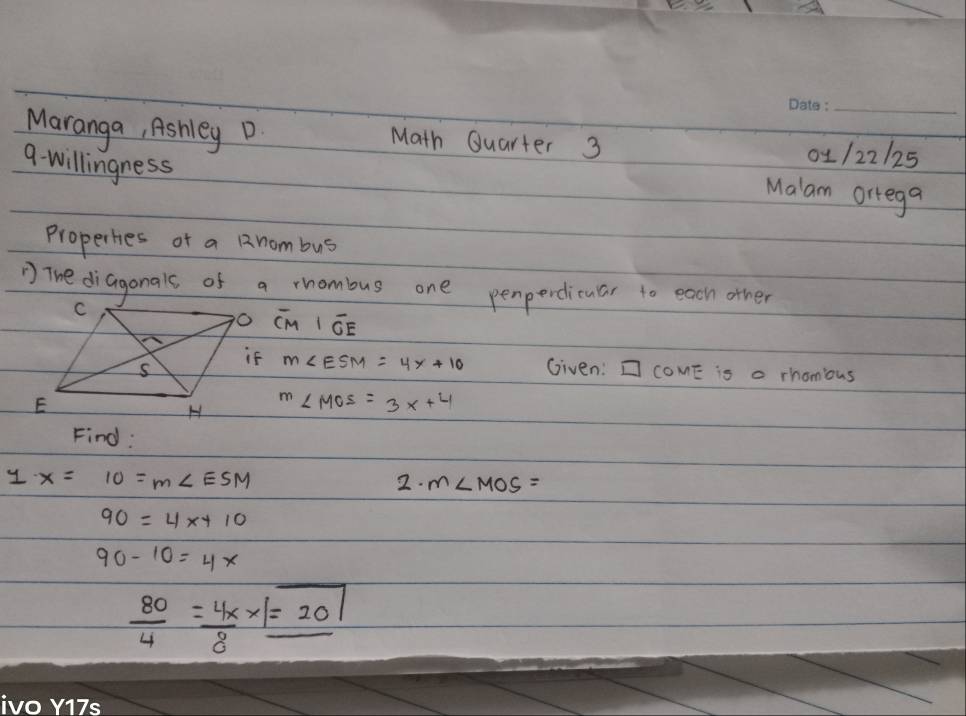 Date :
Maranga, Ashley D. Math Quarter 3 01/22/25
9-Willingness Ma'am Ortega
Properties of a Rhombus
1) The diagonals of a rhombus one penperdicular to each other
C
O
S
E
H
CM | OE
if m∠ESM = 4x + 10 Given: □ COME is a rhombus
m∠MOS = 3x + 4
Find:
1. x = 10 = m∠ESM 2. m∠MOS =
90 = 4x + 10
90 - 10 = 4x
80/4 = 4x/8 x = 20
ivo Y17s